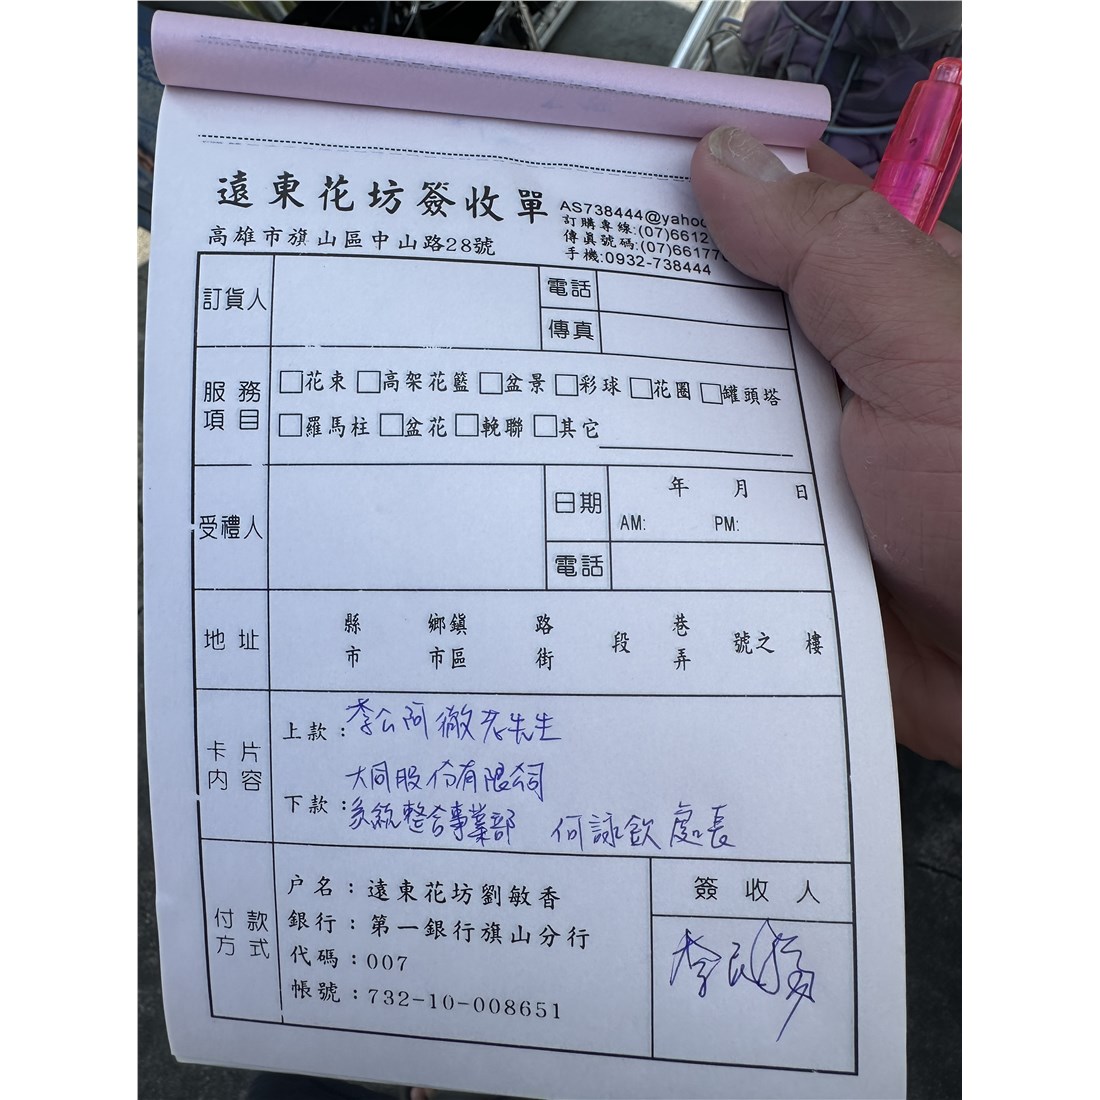 遠東花坊簽收單
AS738444@yahoo
訂購專線:(07)6612
傳真號碼:(07)66177
手機:0932-738444
高雄市旗山區中山路28號
訂貨人
電話
傳真
服務項目
□花束 □高架花籃 □盆景 □彩球 □花圈 □罐頭塔
□羅馬柱 □盆花 □輓聯 □其它
受禮人
日期
年 月 日
AM: PM:
電話
地址
縣 鄉鎮 路 段 巷 號之 樓
市 市區 街 弄
卡片內容
上款:李公阿徹老先生
大同股份有限公司
下款:系統整合事業部 何詠欽處長
付款方式
户名:遠東花坊劉敏香
銀行:第一銀行旗山分行
代碼:007
帳號:732-10-008651
簽收人
李民